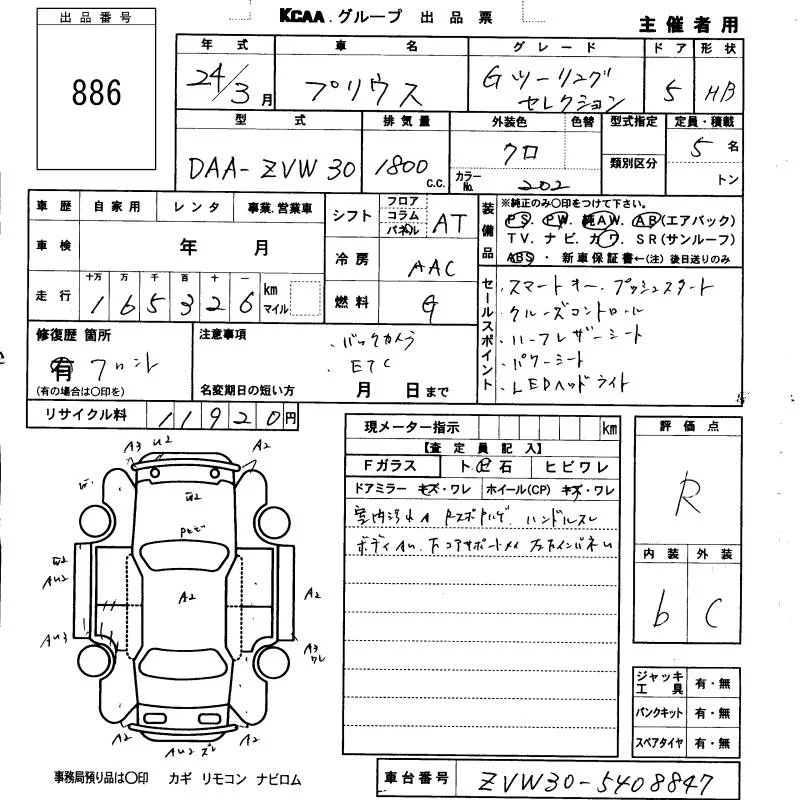 出品番号
886
KCAA.グループ 出品票
主催者用
年式 車名 グレード ドア 形状
24/3月 プリウス Gツーリング
セレクション 5 HB
型式 排気量 外装色 色替 型式指定 定員・積載
DAA-ZVW30 1800 C.C. クロ 類別区分 5名
カラーNo. 202 トン
車歴 自家用 レンタ 事業.営業車
車検 年 月
走行 十万 万 千 百 十 一 km マイル
1 6 5 3 2 6
シフト フロア コラム パネル AT
冷房 AAC
燃料 G
装備品 ※純正のみ○印をつけて下さい。
PS. PW. 純AW. AB(エアバック)
TV. ナビ. カワ. SR(サンルーフ)
ABS ・ 新車保証書←(注) 後日送りのみ
セールスポイント
・スマートキー.プッシュスタート
・クルーズコントロール
・ハーフレザーシート
・パワーシート
・LEDヘッドライト
修復歴 箇所
有 フロント
(有の場合は○印を)
注意事項
・バックカメラ
・ETC
名変期日の短い方 月 日まで
リサイクル料 11920円
現メーター指示 km
【査定員記入】
Fガラス ト 石 ヒビワレ
ドアミラー キズ・ワレ ホイール(CP) キズ・ワレ
室内汚れ ハンドルスレ
ボディ コアサポート
評価点
R
内装 外装
b C
A3 U2 A2
A2
A2
A2
AU3
A3
ワレ
A2
AU2 ズレ
ジャッキ
工具 有・無
パンクキット 有・無
スペアタイヤ 有・無
事務局預り品は○印 カギ リモコン ナビロム
車台番号 ZVW30-5408847